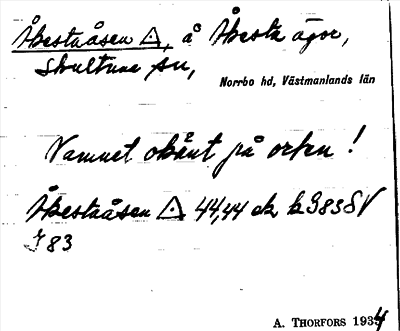 Åbestaåsen △, å Åbesta ägor,
Skultuna sn,
Norrbo hd, Västmanlands län
Namnet okänt på orten!
Åbestaåsen △ 44,44 ek k 383 SV
J 83
A. THORFORS 1934